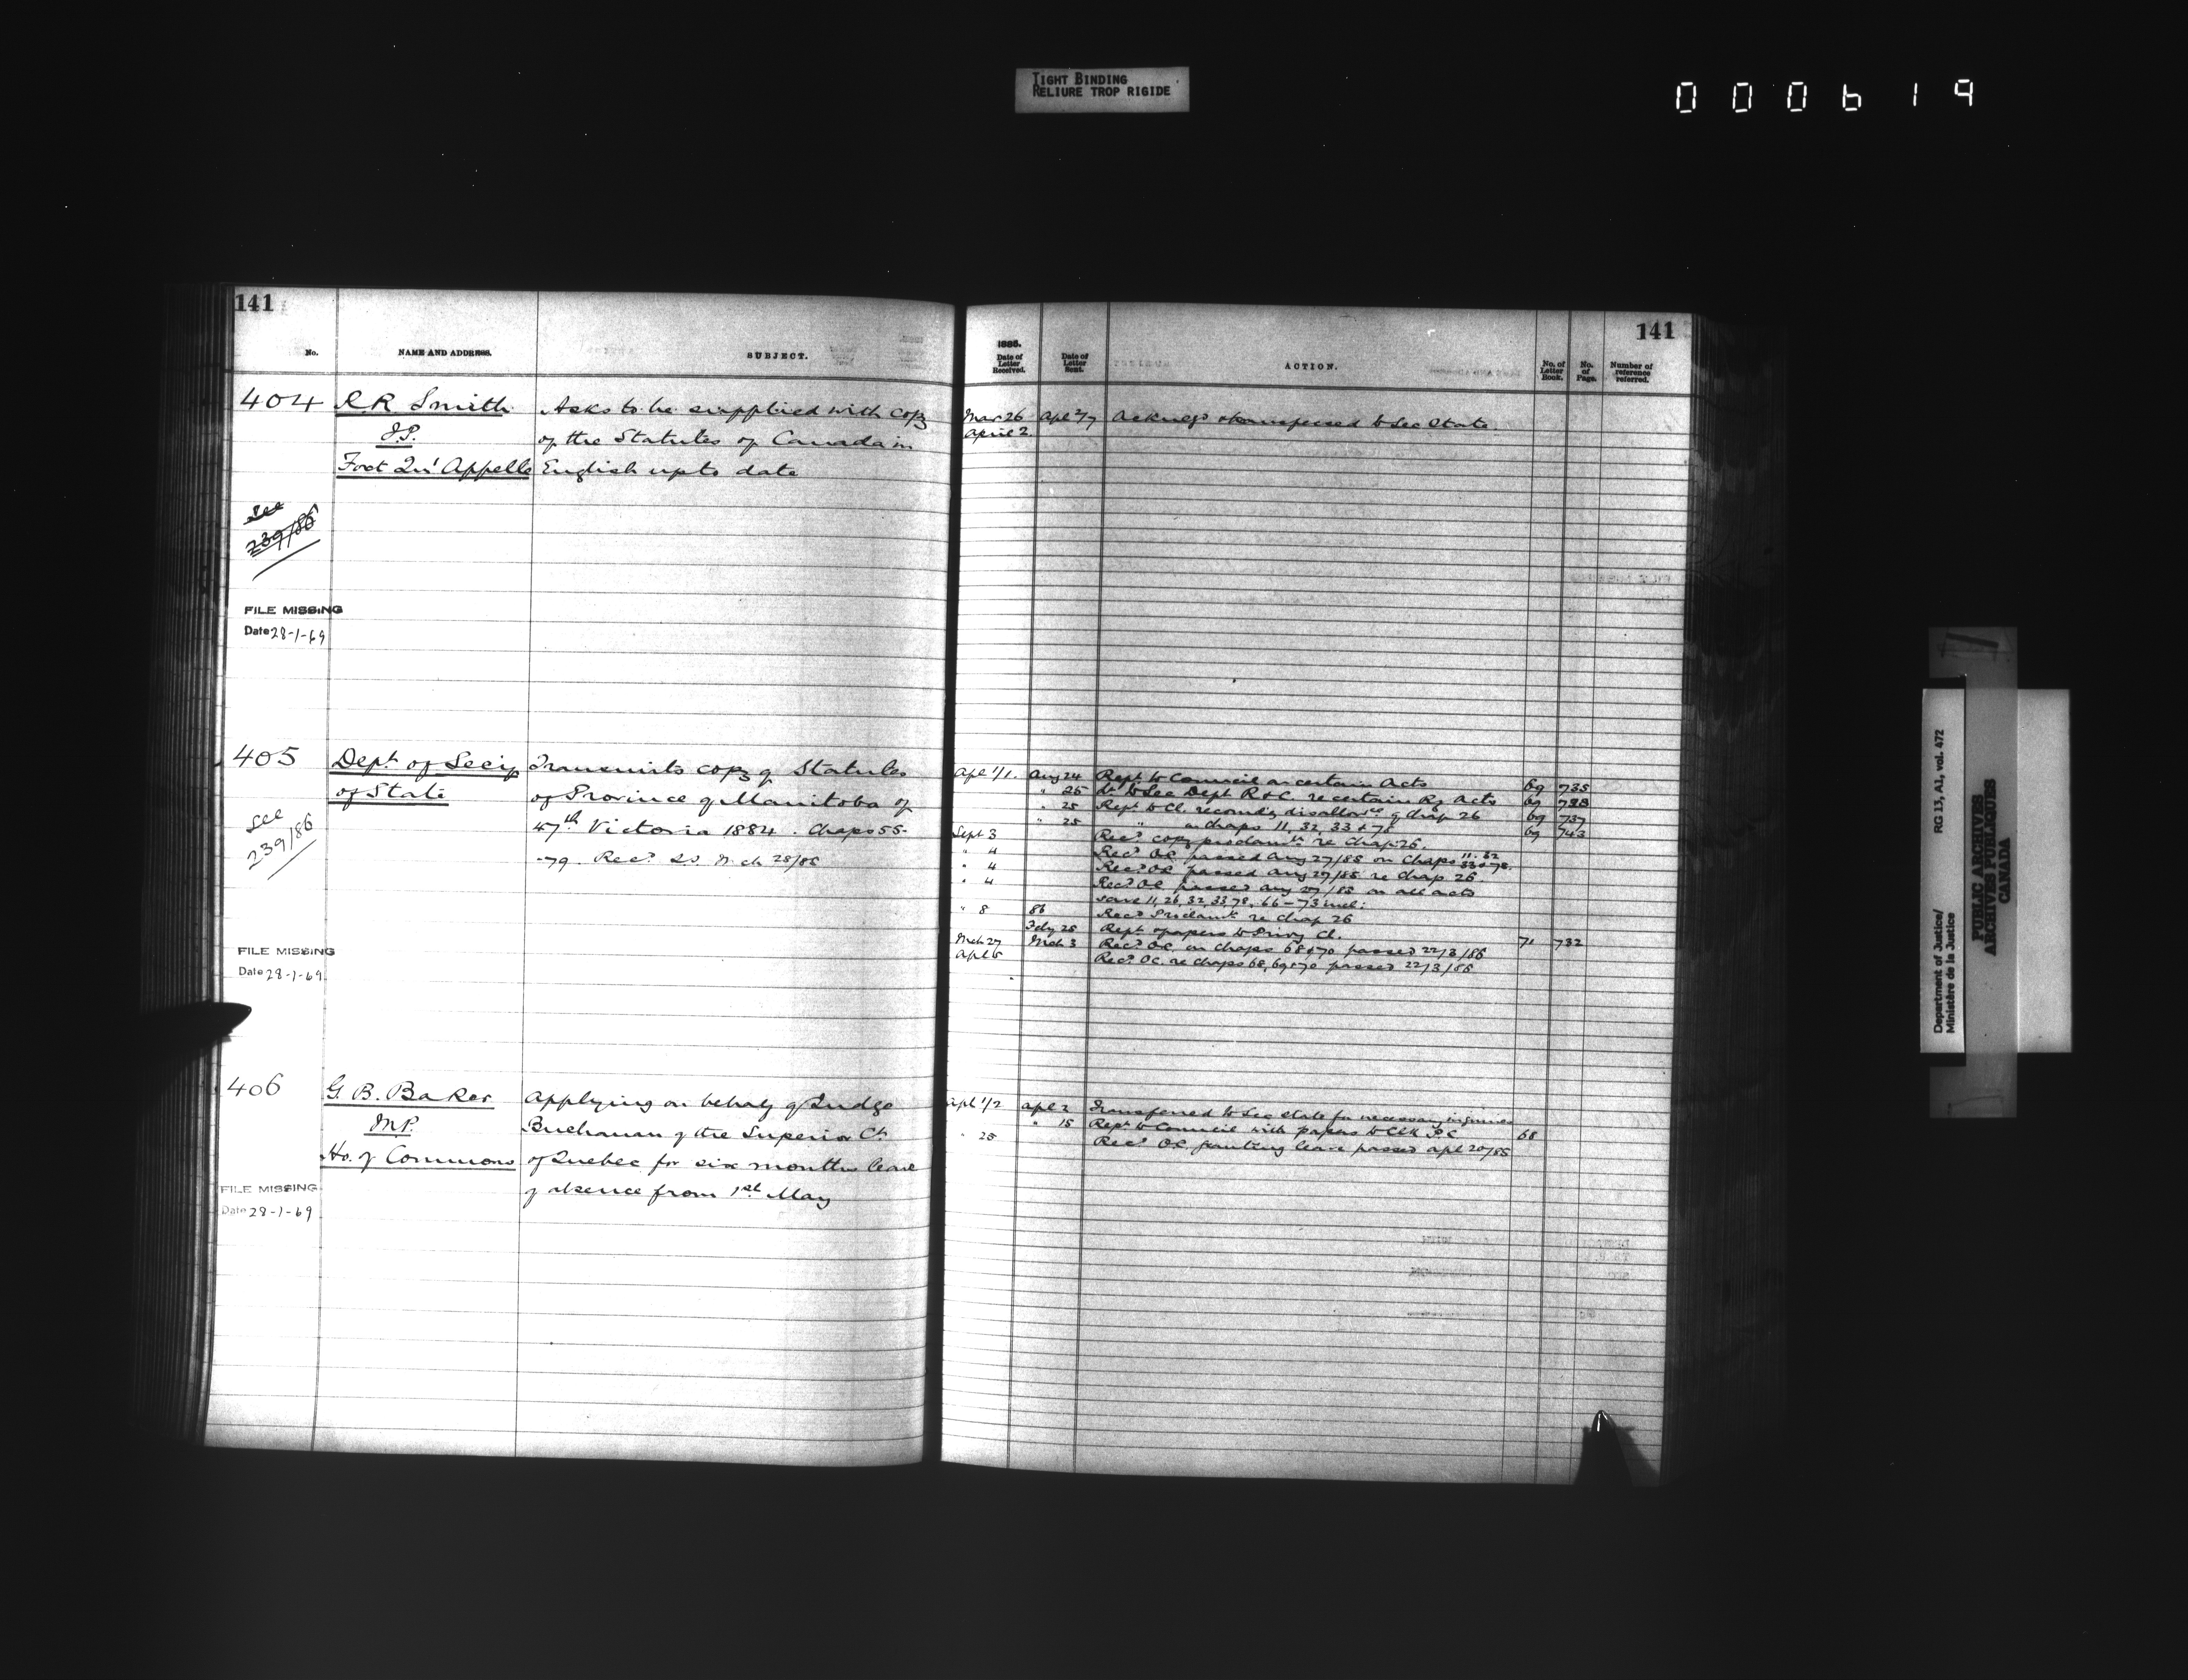 TIGHT BINDING
RELIURE TROP RIGIDE
000619
141
No.
NAME AND ADDRESS.
SUBJECT.
404
R R Smith
J.P.
Fort Qu'Appelle
Asks to be supplied with copy
of the Statutes of Canada in
English up to date
See
239/86
FILE MISSING
Date 28-1-69
405
Dept of Secy
of State
Transmits copy of Statutes
of Province of Manitoba of
47th Victoria 1884. Chaps 55-
-79. Recd Mch 28/85
See
239/86
FILE MISSING
Date 28-1-69
406
G. B. Baker
M.P.
Ho. of Commons
Applying on behalf of Judge
Buchanan of the Superior Ct
of Quebec for six months leave
of absence from 1st May
FILE MISSING
Date 28-1-69
141
1885.
Date of Letter Received.
Date of Letter Sent.
ACTION.
No. of Letter Book.
No. of Page.
Number of reference referred.
Mar 26 Apl 2/7 Acknegd & transferred to Sec State
April 2
Apl 1/1. Aug 24 Rept to Council on certain Acts 69 735
" 25 to Sec Dept R & C. re certain Ry Acts 69
" 25 Rept to Cl. recomdg disallowce of chap 26 69 737
" 25 " on chaps 11, 32, 33 & 78 69 743
Sept 3 Recd copy proclamtn re Chap 26.
" 4 Recd OC passed Aug 27/85 on Chaps 11. 32 33 & 78.
" 4 Recd OC passed Aug 27/85 re Chap 26.
" 4 Recd OC passed Aug 27/85 on all acts
save 11, 26, 32, 33, 78, 66-73 incl:
" 8 Recd Proclamtn re Chap 26
86
Feby 25 Rept & papers to Privy Cl.
Mch 27 Mch 3 Recd OC. on chaps 68 & 70 passed 22/3/86 71 732
Apl 5 Recd OC. re chaps 68, 69 & 70 passed 22/3/86
Apl 1/2 Apl 2 Transferred to Sec State for necessary inquiries
" 15 Rept to Council with papers to Clk P.C 68
" 25 Recd OC. granting leave passed Apl 20/85
Department of Justice/
Ministère de la Justice
RG 13, A1, vol. 472
PUBLIC ARCHIVES
ARCHIVES PUBLIQUES
CANADA